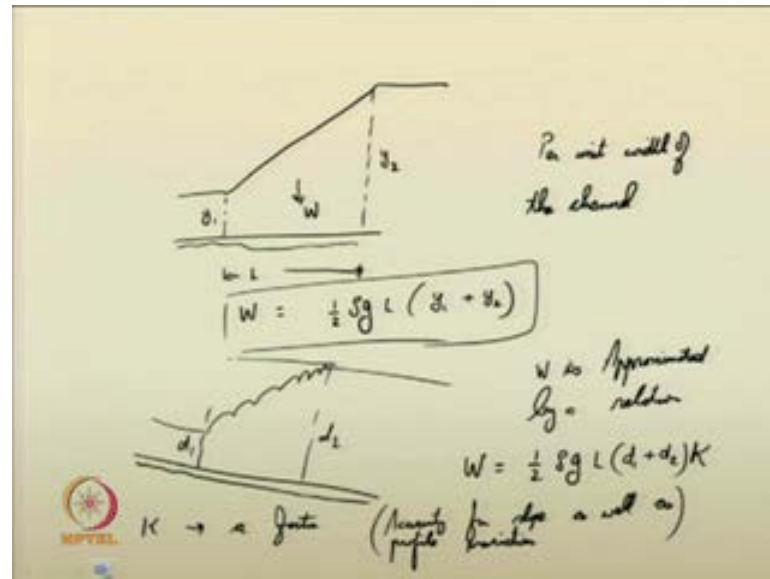 y₂
Per unit width of
the channel
y₁
W
L
W = ½ ρg L (y₁ + y₂)
W is Approximated
by a relation
d₁
d₂
W = ½ ρg L (d₁ + d₂) K
K → a factor (Accounts for slope as well as
profile variation)
NPTEL